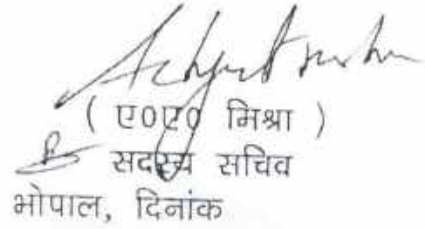 ( ए0ए0 मिश्रा )
सदस्य सचिव
भोपाल, दिनांक